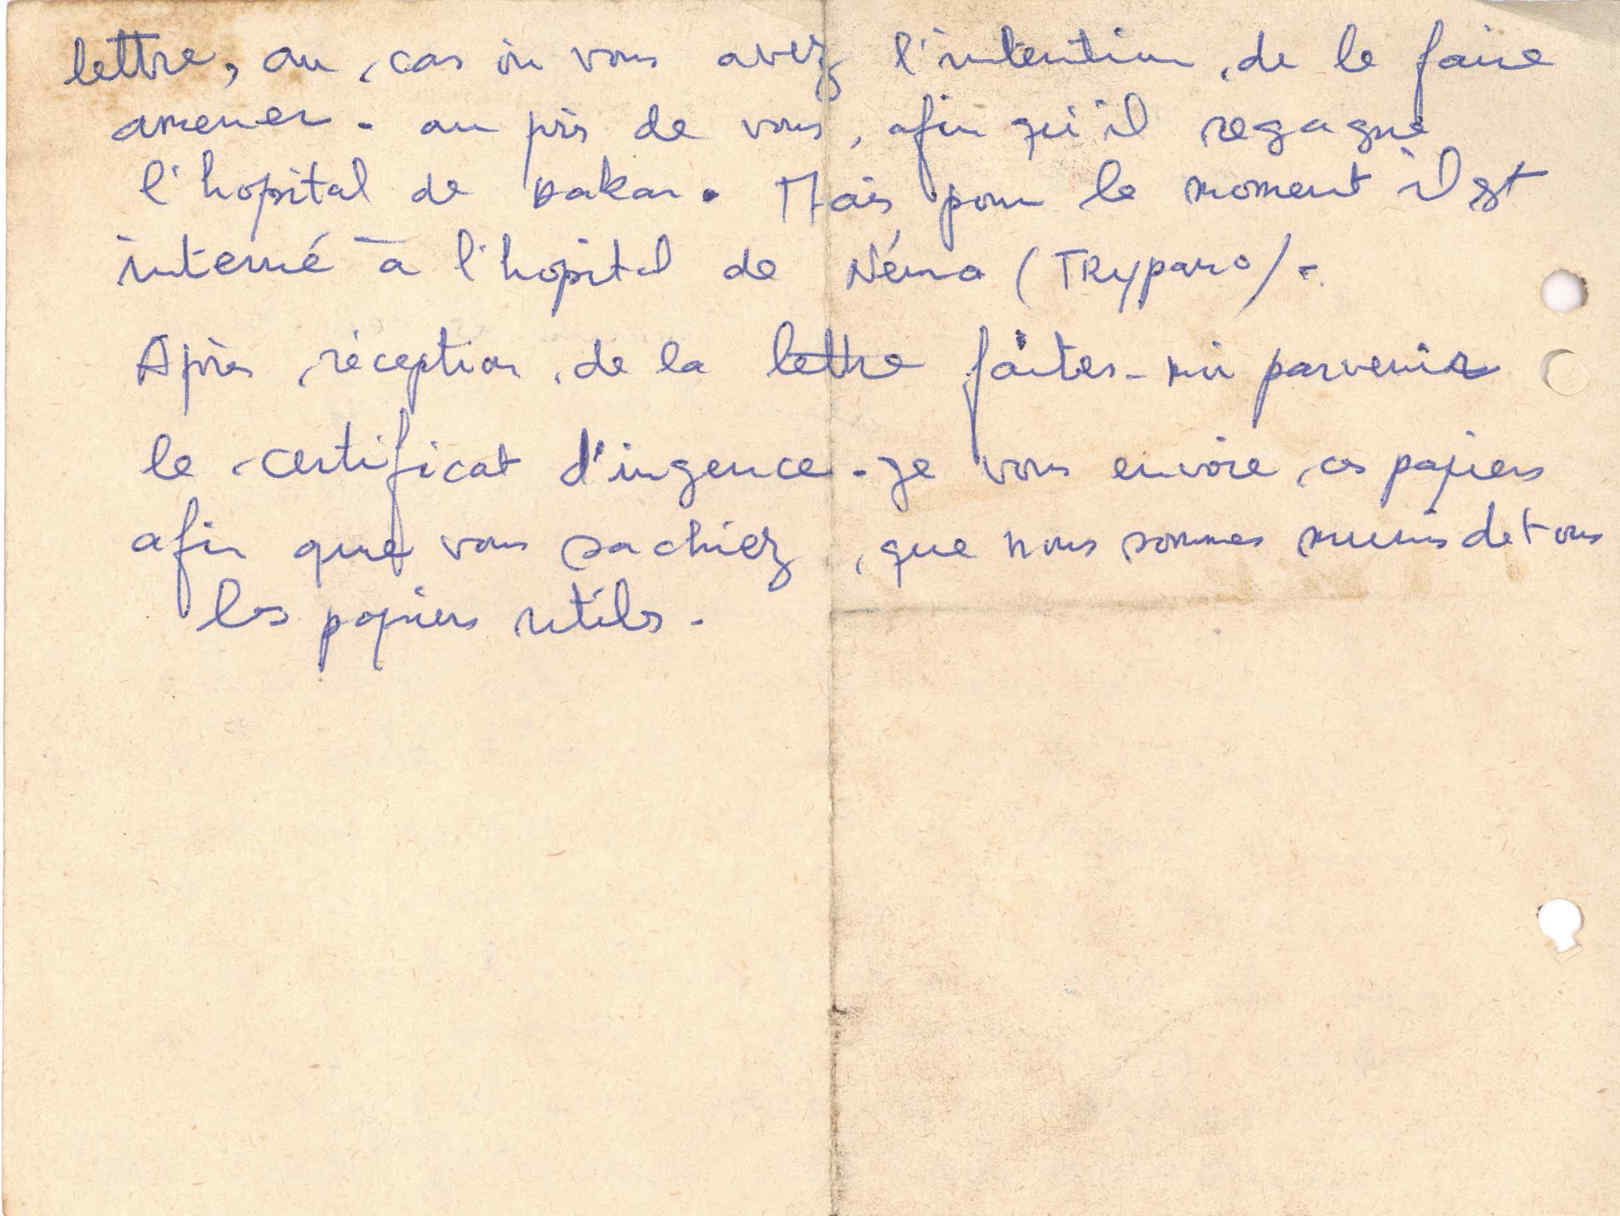 lettre, au cas où vous avez l'intention de le faire
amener - au près de vous, afin qu'il regagne
l'hopital de Dakar. Mais pour le moment il est
interné à l'hopital de Néma (TRypano) -
Après réception de la lettre faites-moi parvenir
le certificat d'ingence - je vous envoie ces papiers
afin que vous sachiez, que nous sommes munis de tous
les papiers utiles -